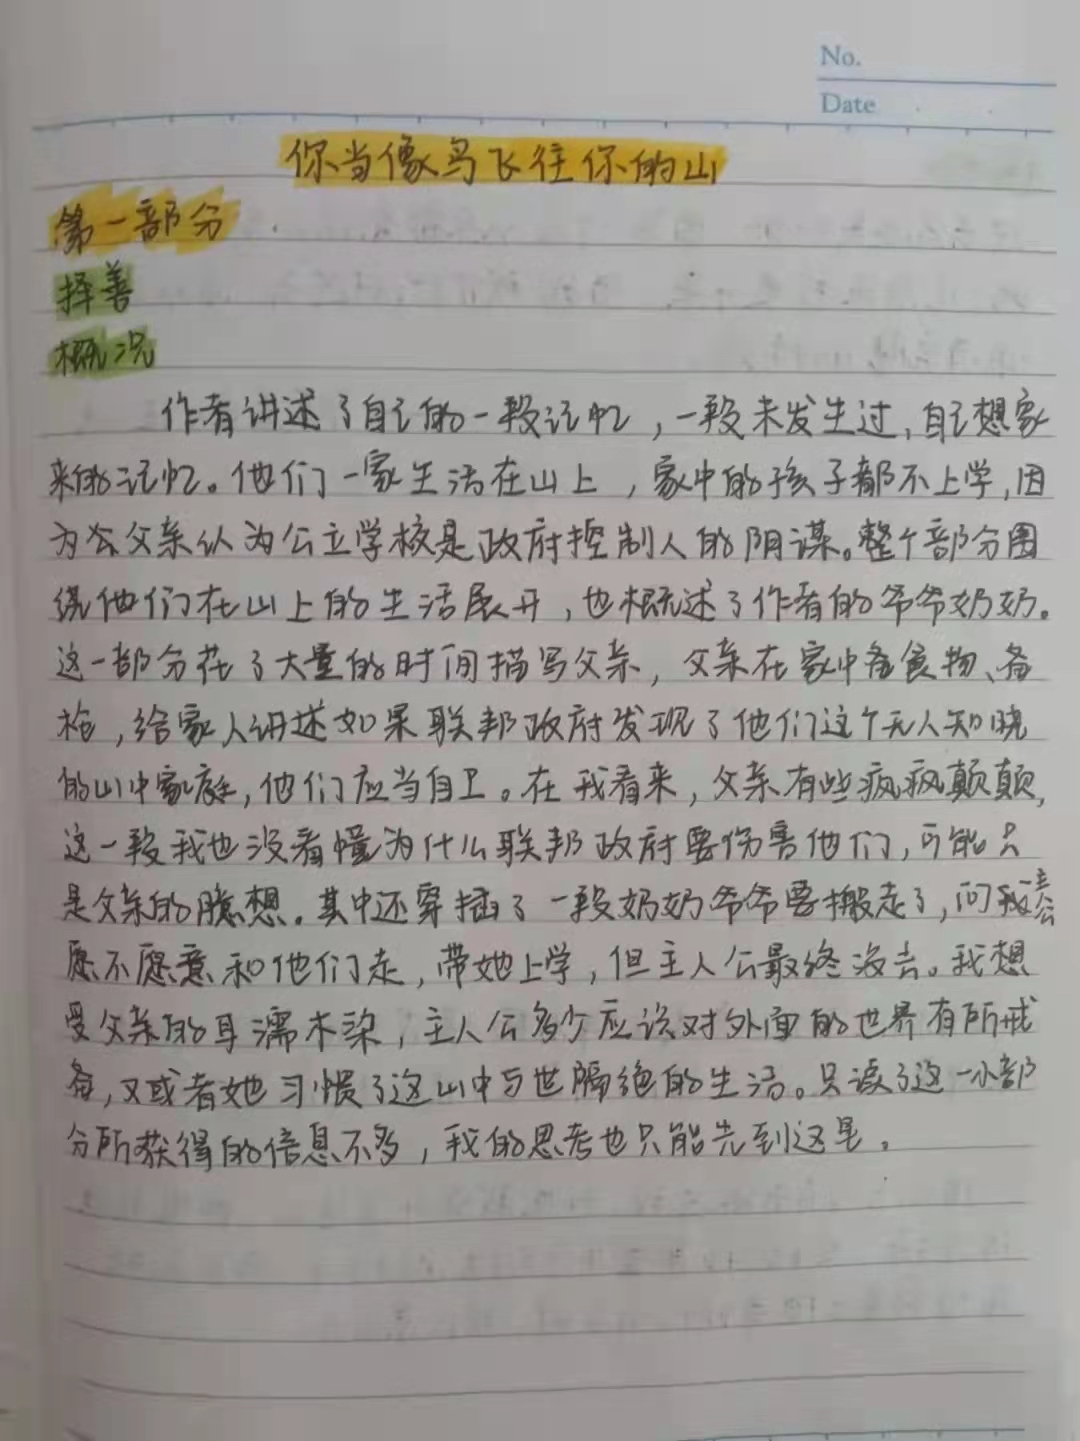 No.
Date
你当像鸟飞往你的山
第一部分
择善
概况
作者讲述了自己的一段记忆，一段未发生过，自己想象
来的记忆。他们一家生活在山上，家中的孩子都不上学，因
为父亲认为公立学校是政府控制人的阴谋。整个部分围
绕他们在山上的生活展开，也概述了作者的爷爷奶奶。
这一部分花了大量的时间描写父亲，父亲在家中备食物、备
枪，给家人讲述如果联邦政府发现了他们这个无人知晓
的山中家庭，他们应当自卫。在我看来，父亲有些疯疯颠颠，
这一段我也没看懂为什么联邦政府要伤害他们，可能只
是父亲的臆想。其中还穿插了一段奶奶爷爷要搬走了，问主人公
愿不愿意和他们走，带她上学，但主人公最终没去。我想
受父亲的耳濡木染，主人公多少应该对外面的世界有所戒
备，又或者她习惯了这山中与世隔绝的生活。只读了这一小部
分所获得的信息不多，我的思考也只能先到这里。